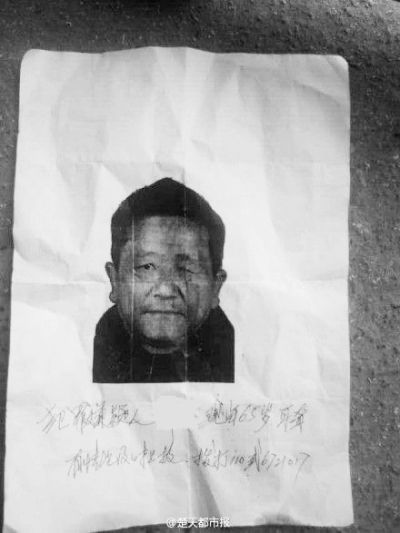 犯罪嫌疑人 现年65岁 耳聋
有情况及时报警 拨打110或6721017
@楚天都市报